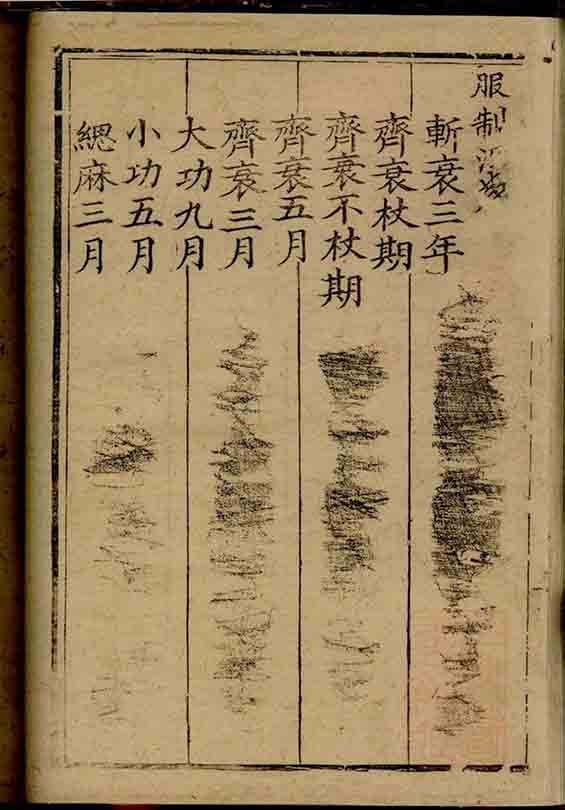 服制
斬衰三年
齊衰杖期
齊衰不杖期
齊衰五月
齊衰三月
大功九月
小功五月
緦麻三月